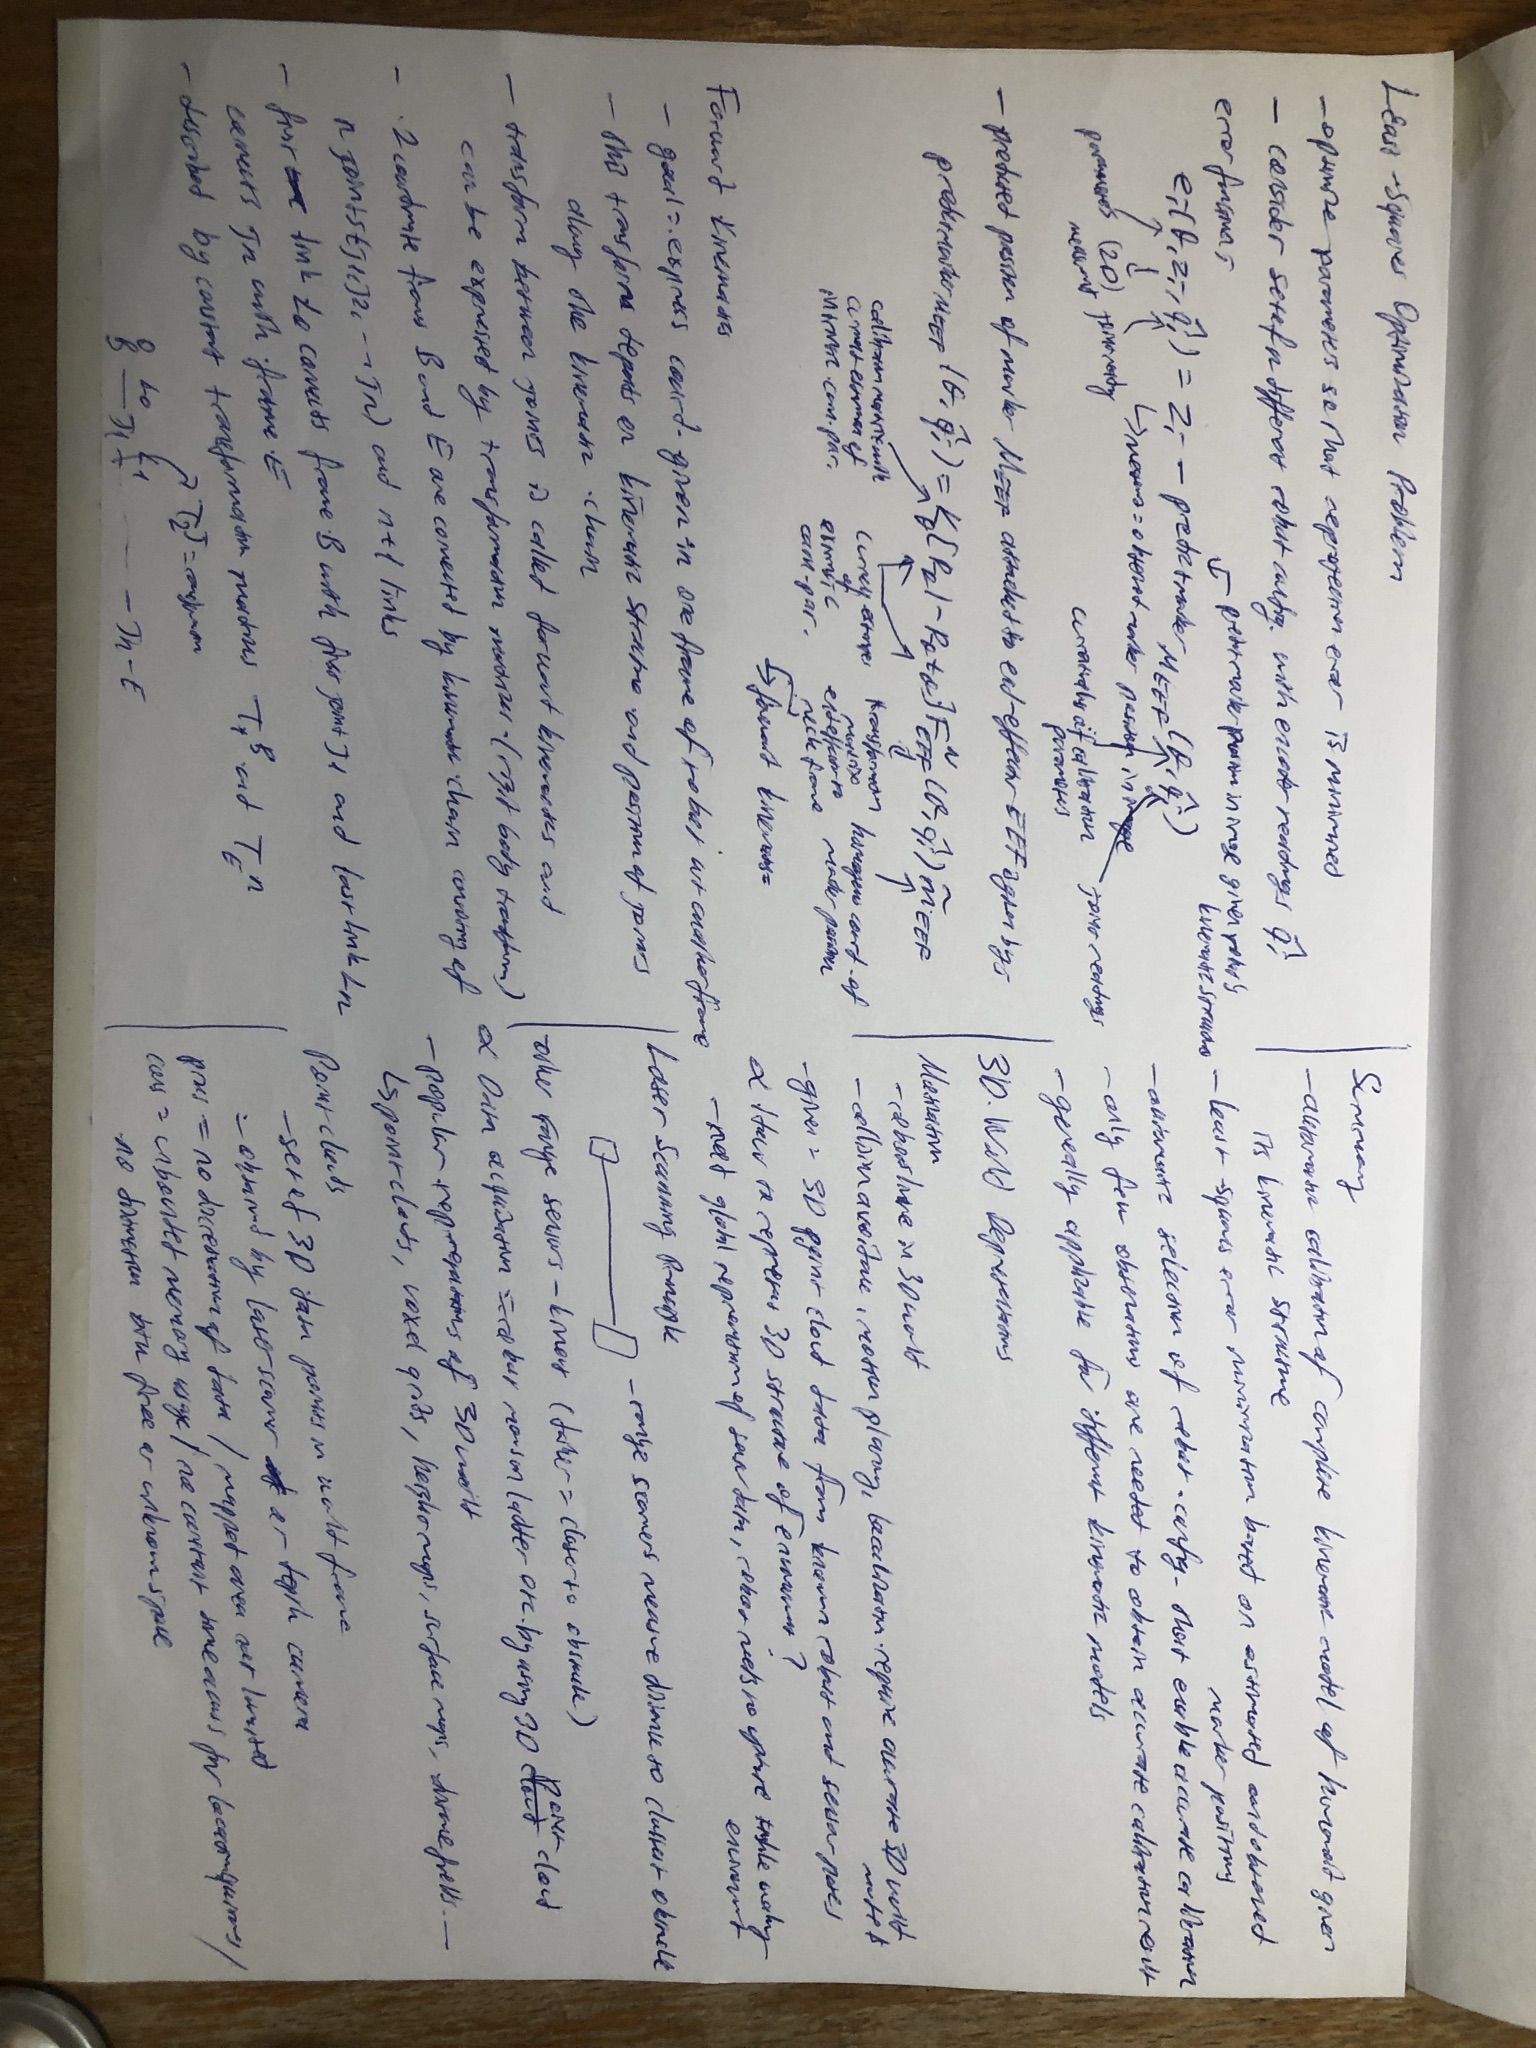 Least-Squares Optimization Problem
- optimize parameters so that reprojection error is minimized
- consider set of n different robot config. with encoder readings q̂i
error function is
ei(θ, zi, q̂i) = zi - predictmarker MEEF (θ, q̂i)
parameters (2D) joint reading
measured
↳ predict marker position in image given robots kinematic structure
↳ means = observed marker position in image
joint readings
calibration parameters
- predict position of marker MEEF attached to end-effector EEF given by:
predictmarker MEEF (θ, q̂i) =
calibration matrix with
current estimation of
intrinsic cam. par.
current estimate of
extrinsic
cam. par.
transformation
matrix
end effector to
neck frame
homogenous coord. of
marker position
↳ forward kinematics
Forward Kinematics
- goal = express coord. given in one frame of robot in another frame
- this transform depends on kinematic structure and position of joints
along the kinematic chain
- transform between joints is called forward kinematics and
can be expressed by transformation matrices (rigid body transform)
- 2 coordinate frames B and E are connected by kinematic chain consisting of
n joints (J1, J2, ... Jn) and n+1 links
- first link L0 connects frame B with first joint J1 and last link Ln
connects Jn with frame E
- described by constant transformation matrices T1^B and TE^n
B L0 J1 L1 J2 ---- Jn - E
Summary
- automatic calibration of complete kinematic model of humanoid given
its kinematic structure
- least-squares error minimization based on estimated and observed
marker positions
- automatic selection of robot config. that enable accurate calibration
- only few observations are needed to obtain accurate calibration result
- generally applicable for different kinematic models
3D World Representations
Motivation
- robots live in 3D world
- collision avoidance, motion planning, localization require accurate 3D world
models
- given = 3D point cloud data from known robot and sensor poses
α How to represent 3D structure of environment?
- need global representation of sensor data, robot needs to update while using
environment
Laser Scanning Principle
- range scanners measure distance to closest obstacle
other range sensors - kinect (darker = closer to obstacle)
α Data acquisition = robot motion builder etc. by using 3D point cloud
- popular representations of 3D world
↳ point clouds, voxel grids, height maps, surface maps, distance fields...
Point clouds
- set of 3D data points in world frame
= obtained by laser scanner or depth camera
pros = no discretization of data / mapped area not limited
cons = unbounded memory usage / no constant time access for location queries /
no distinction btw free or unknown space